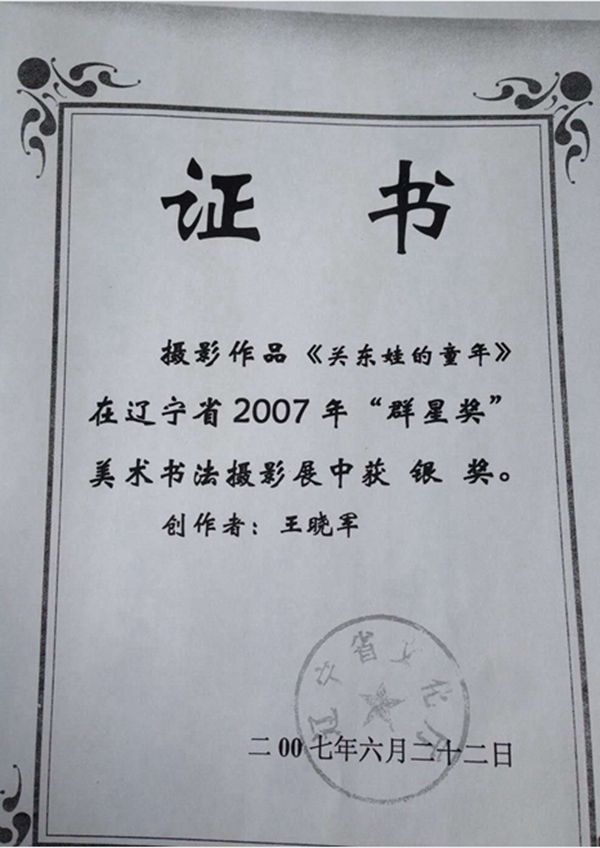 证 书
摄影作品《关东娃的童年》
在辽宁省2007年“群星奖”
美术书法摄影展中获 银 奖。
创作者：王晓军
辽宁省文化厅
二00七年六月二十二日